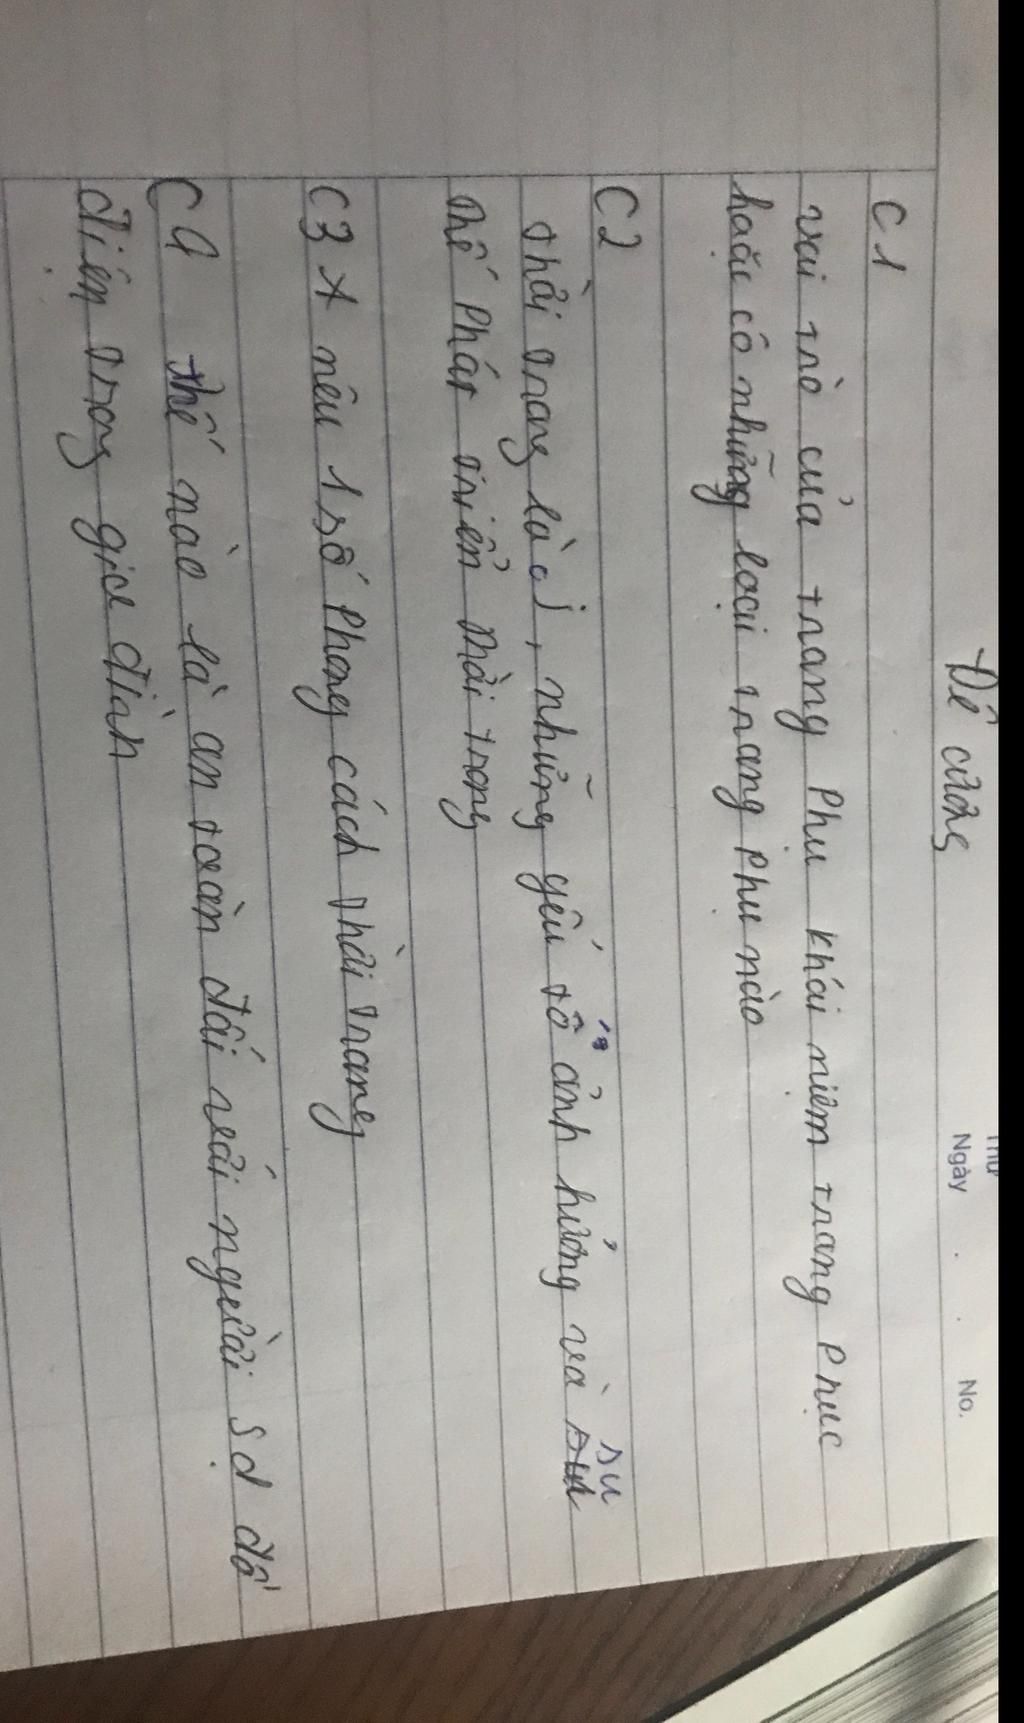 Đề cương
Ngày
No.
C1
vai trò của trang phụ khái niệm trang phục
hoặc có những loại trang phụ nào
C2
thời trang là j, những yếu tố ảnh hưởng và su
thế phát triển thời trang
C3 * nêu 1 số phong cách thời trang
C4 thế nào là an toàn đối với người sd đồ
điện trong gia đình